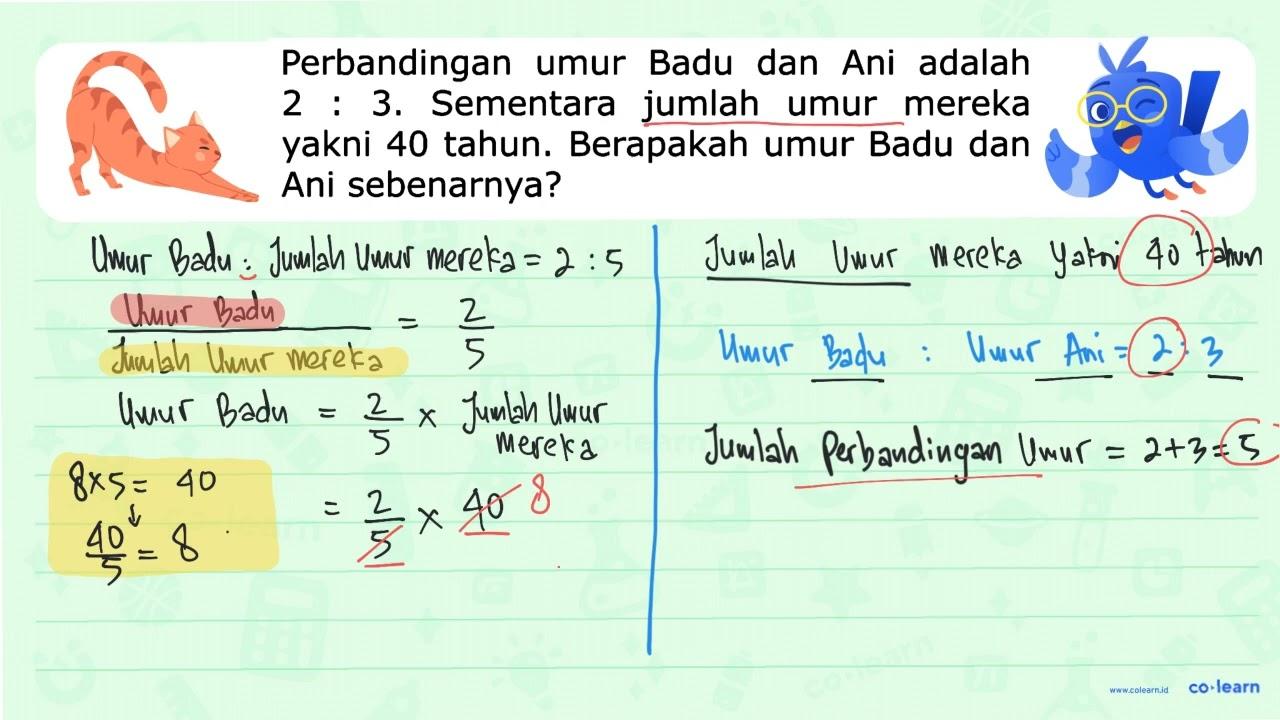 Perbandingan umur Badu dan Ani adalah
2 : 3. Sementara jumlah umur mereka
yakni 40 tahun. Berapakah umur Badu dan
Ani sebenarnya?
Umur Badu : Jumlah Umur mereka = 2 : 5
Umur Badu / Jumlah Umur mereka = 2/5
Umur Badu = 2/5 × Jumlah Umur
mereka
= 2/5 × 40 8
8×5 = 40
↓
40/5 = 8
Jumlah Umur mereka yakni 40 tahun
Umur Badu : Umur Ani = 2 : 3
Jumlah Perbandingan Umur = 2+3 = 5
co·learn
co·learn
co·learn
www.colearn.id co·learn